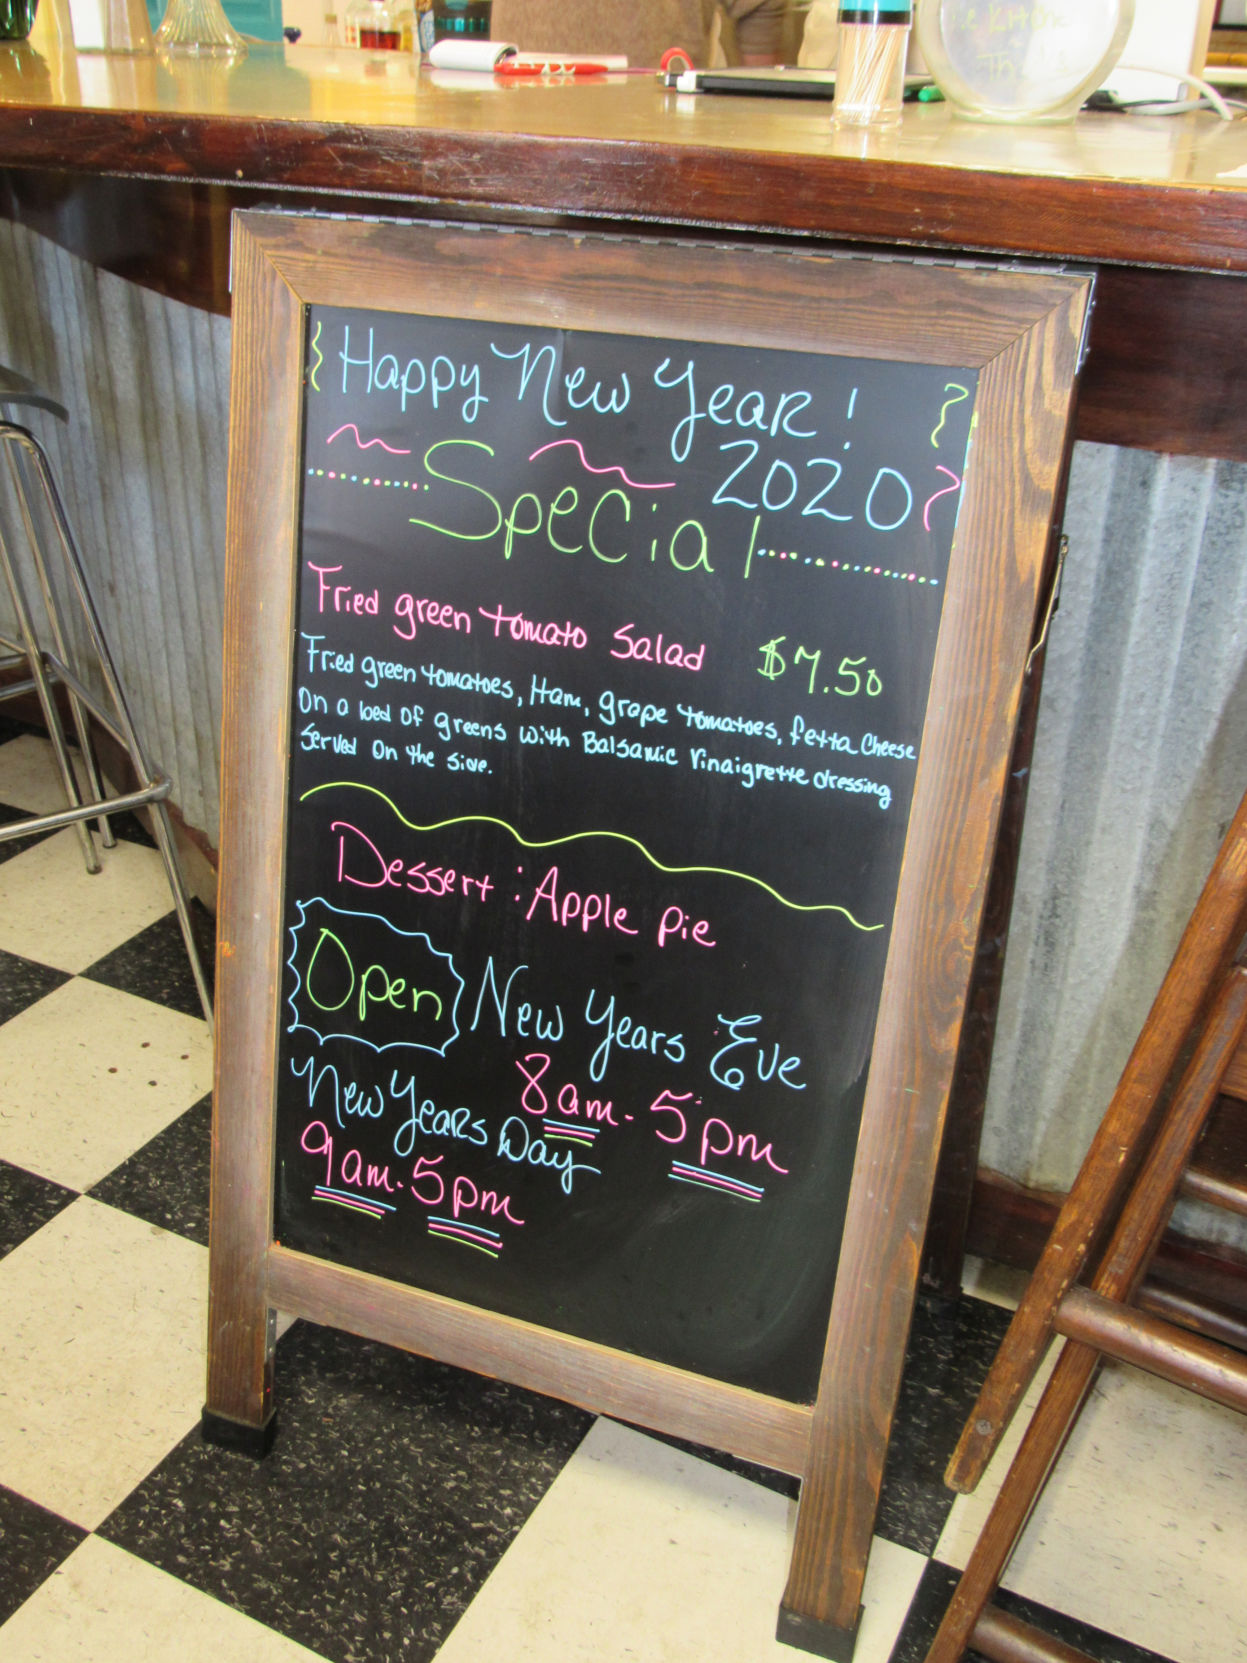 Happy New Year!
2020
Special
Fried green tomato Salad $7.50
Fried green tomatoes, Ham, grape tomatoes, fetta Cheese
On a bed of greens with Balsamic Vinaigrette dressing
Served On the side.
Dessert: Apple pie
Open New Years Eve
8am - 5pm
New Years Day
9am - 5pm